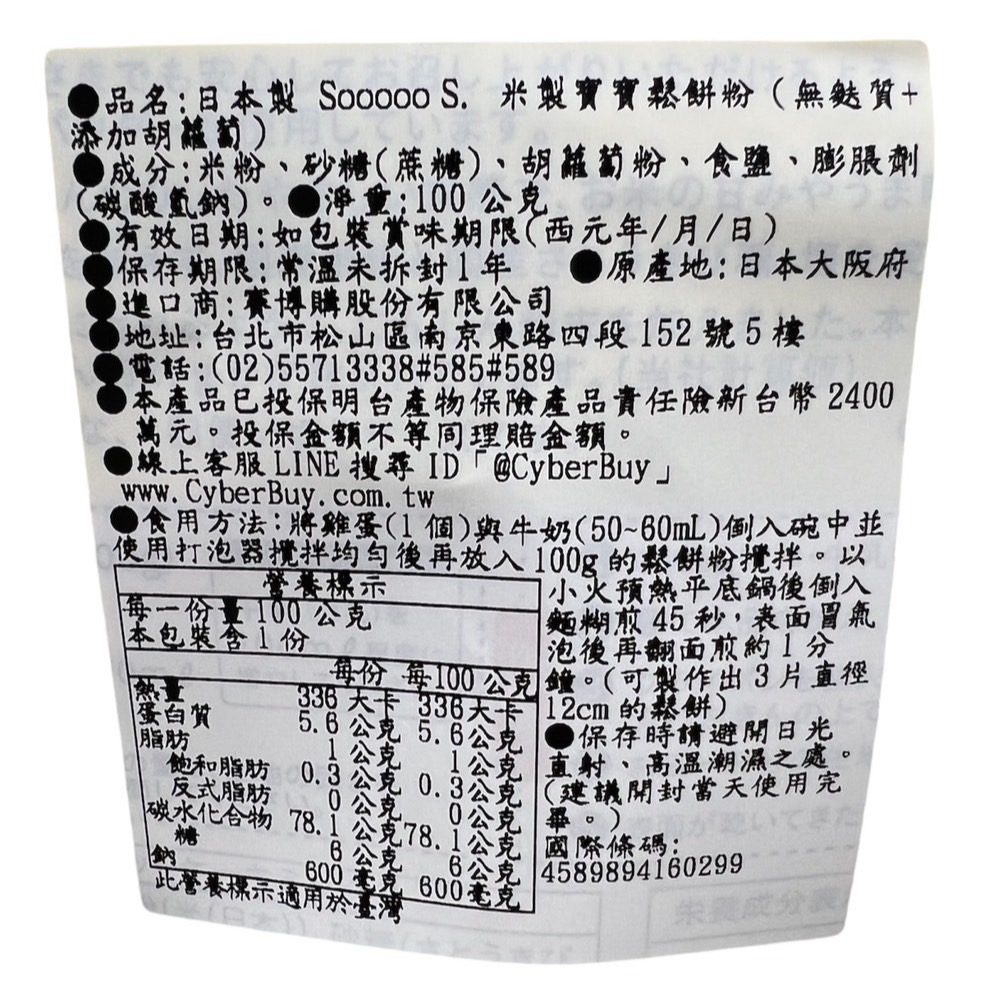 ●品名:日本製 Sooooo S. 米製寶寶鬆餅粉(無麩質+
添加胡蘿蔔)
●成分:米粉、砂糖(蔗糖)、胡蘿蔔粉、食鹽、膨脹劑
(碳酸氫鈉)。●淨重:100 公克
●有效日期:如包裝賞味期限(西元年/月/日)
●保存期限:常溫未拆封1年 ●原產地:日本大阪府
●進口商:賽博購股份有限公司
●地址:台北市松山區南京東路四段 152 號 5 樓
●電話:(02)55713338#585#589
●本產品已投保明台產物保險產品責任險新台幣 2400
萬元。投保金額不等同理賠金額。
●線上客服 LINE 搜尋 ID「@CyberBuy」
www.CyberBuy.com.tw
●食用方法:將雞蛋(1 個)與牛奶(50~60mL)倒入碗中並
使用打泡器攪拌均勻後再放入 100g 的鬆餅粉攪拌。以
小火預熱平底鍋後倒入
麵糊煎 45 秒,表面冒氣
泡後再翻面煎約 1 分
鐘。(可製作出 3 片直徑
12cm 的鬆餅)
●保存時請避開日光
直射、高溫潮濕之處。
(建議開封當天使用完
畢。)
國際條碼:
4589894160299
營養標示
每一份量 100 公克
本包裝含 1 份
每份 每100 公克
熱量 336 大卡 336大卡
蛋白質 5.6 公克 5.6公克
脂肪 1 公克 1公克
飽和脂肪 0.3 公克 0.3公克
反式脂肪 0 公克 0公克
碳水化合物 78.1 公克 78.1公克
糖 6 公克 6公克
鈉 600 毫克 600毫克
此營養標示適用於臺灣